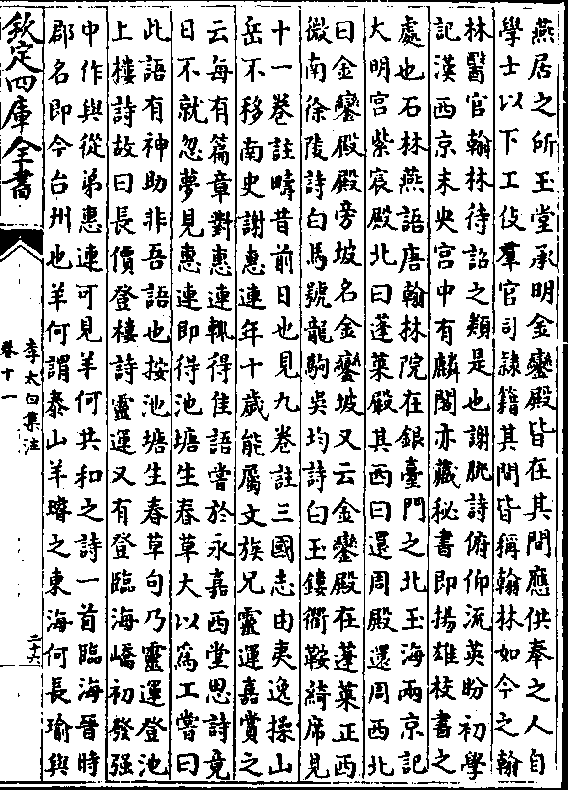 燕居之所玉堂承明金鑾殿皆在其間應供奉之人自
學士以下工伎羣官司隸籍其間皆稱翰林如今之翰
林醫官翰林待詔之類是也謝朓詩俯仰流英盼初學
記漢西京未央宮中有麟閣亦藏秘書即揚雄校書之
處也石林燕語唐翰林院在銀臺門之北玉海兩京記
大明宮紫宸殿北曰蓬萊殿其西曰還周殿還周西北
曰金鑾殿殿旁坡名金鑾坡又云金鑾殿在蓬萊正西
微南徐陵詩白馬號龍駒吳均詩白玉鏤衢鞍綺席見
十一卷註疇昔前日也見九卷註三國志由夷逸操山
岳不移南史謝惠連年十歲能屬文族兄靈運嘉賞之
云每有篇章對惠連輙得佳語嘗於永嘉西堂思詩竟
日不就忽夢見惠連即得池塘生春草大以爲工嘗曰
此語有神助非吾語也按池塘生春草句乃靈運登池
上樓詩故曰長價登樓詩靈運又有登臨海嶠初發强
中作與從弟惠連可見羊何共和之詩一首臨海晉時
郡名即今台州也羊何謂泰山羊璿之東海何長瑜與
欽定四庫全書
李太白集注
卷十一
二十六